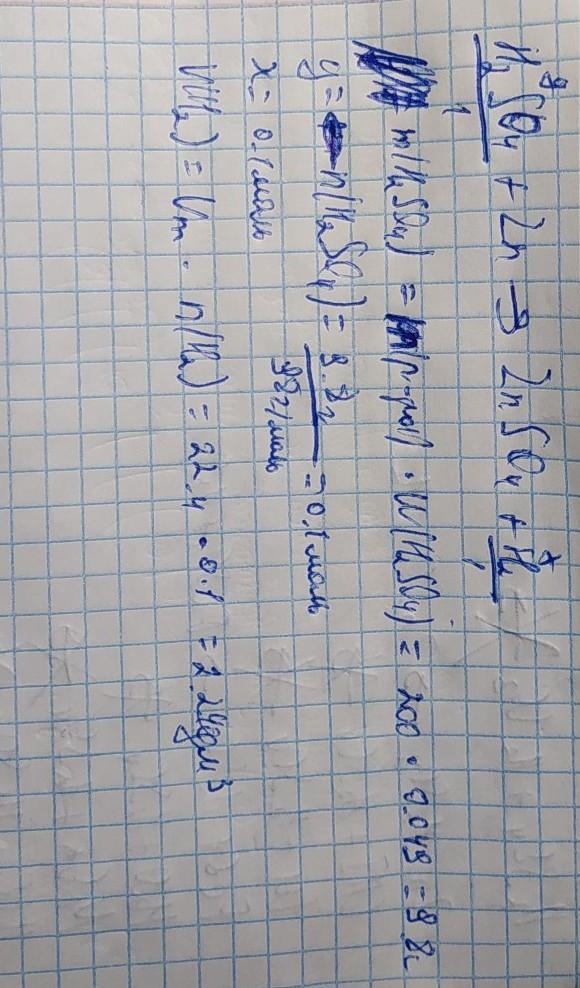 y x
H₂SO₄ + Zn → ZnSO₄ + H₂
1 1
m(H₂SO₄) = m(р-ра) · W(H₂SO₄) = 200 · 0.049 = 9.8г
y = n(H₂SO₄) = 9.8г / 98г/моль = 0,1 моль
x = 0.1 моль
V(H₂) = Vm · n(H₂) = 22,4 · 0.1 = 2.24дм³